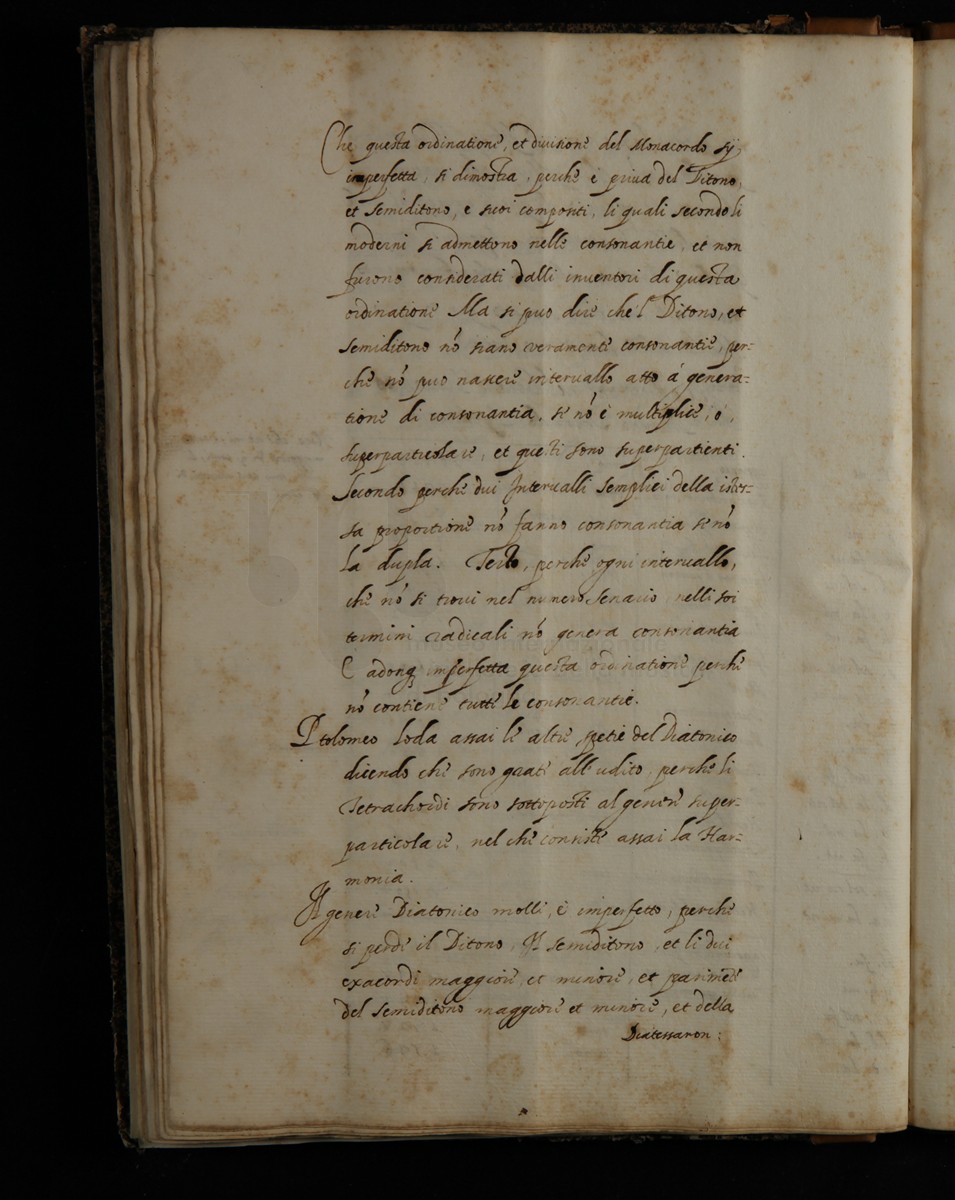 Che questa ordinatione, et divisione del Monacordo sij
imperfetta, si dimostra, perche è priva del Ditono,
et Semiditono, e suoi composti, li quali secondo li
moderni si admettono nelle consonantie, et non
furono considerati dalli inventori di questa
ordinatione Ma si puo dire che'l Ditono, et
Semiditono nō siano veramente consonantie, per-
che nō puo nascere intervallo atto á genera-
tione di consonantia, se nō è multiplice, ó,
superparticolare, et questi sono superpartienti.
Secondo perche dui Intervalli semplici della istes-
sa proportione nō fanno consonantia se nō
la dupla. Terzo, perche ogni intervallo,
che nō si trovi nel numero Senario, nelli soi
termini radicali nō genera consonantia
E adonq imperfetta questa ordinatione perche
nō contiene tutte le consonantie.
Ptolomeo loda assai le altre spetie del Diatonico
dicendo che sono grate all'udito, perche li
Tetrachordi sono sottoposti al genere super-
particolare, nel che consiste assai la Har-
monia.
Il genere Diatonico molle, è imperfetto, perche
si perde il Ditono, Il Semiditono, et li dui
exacordi maggiore et minore, et parimēte
del Semiditono maggiore et minore, et della
Diatessaron;